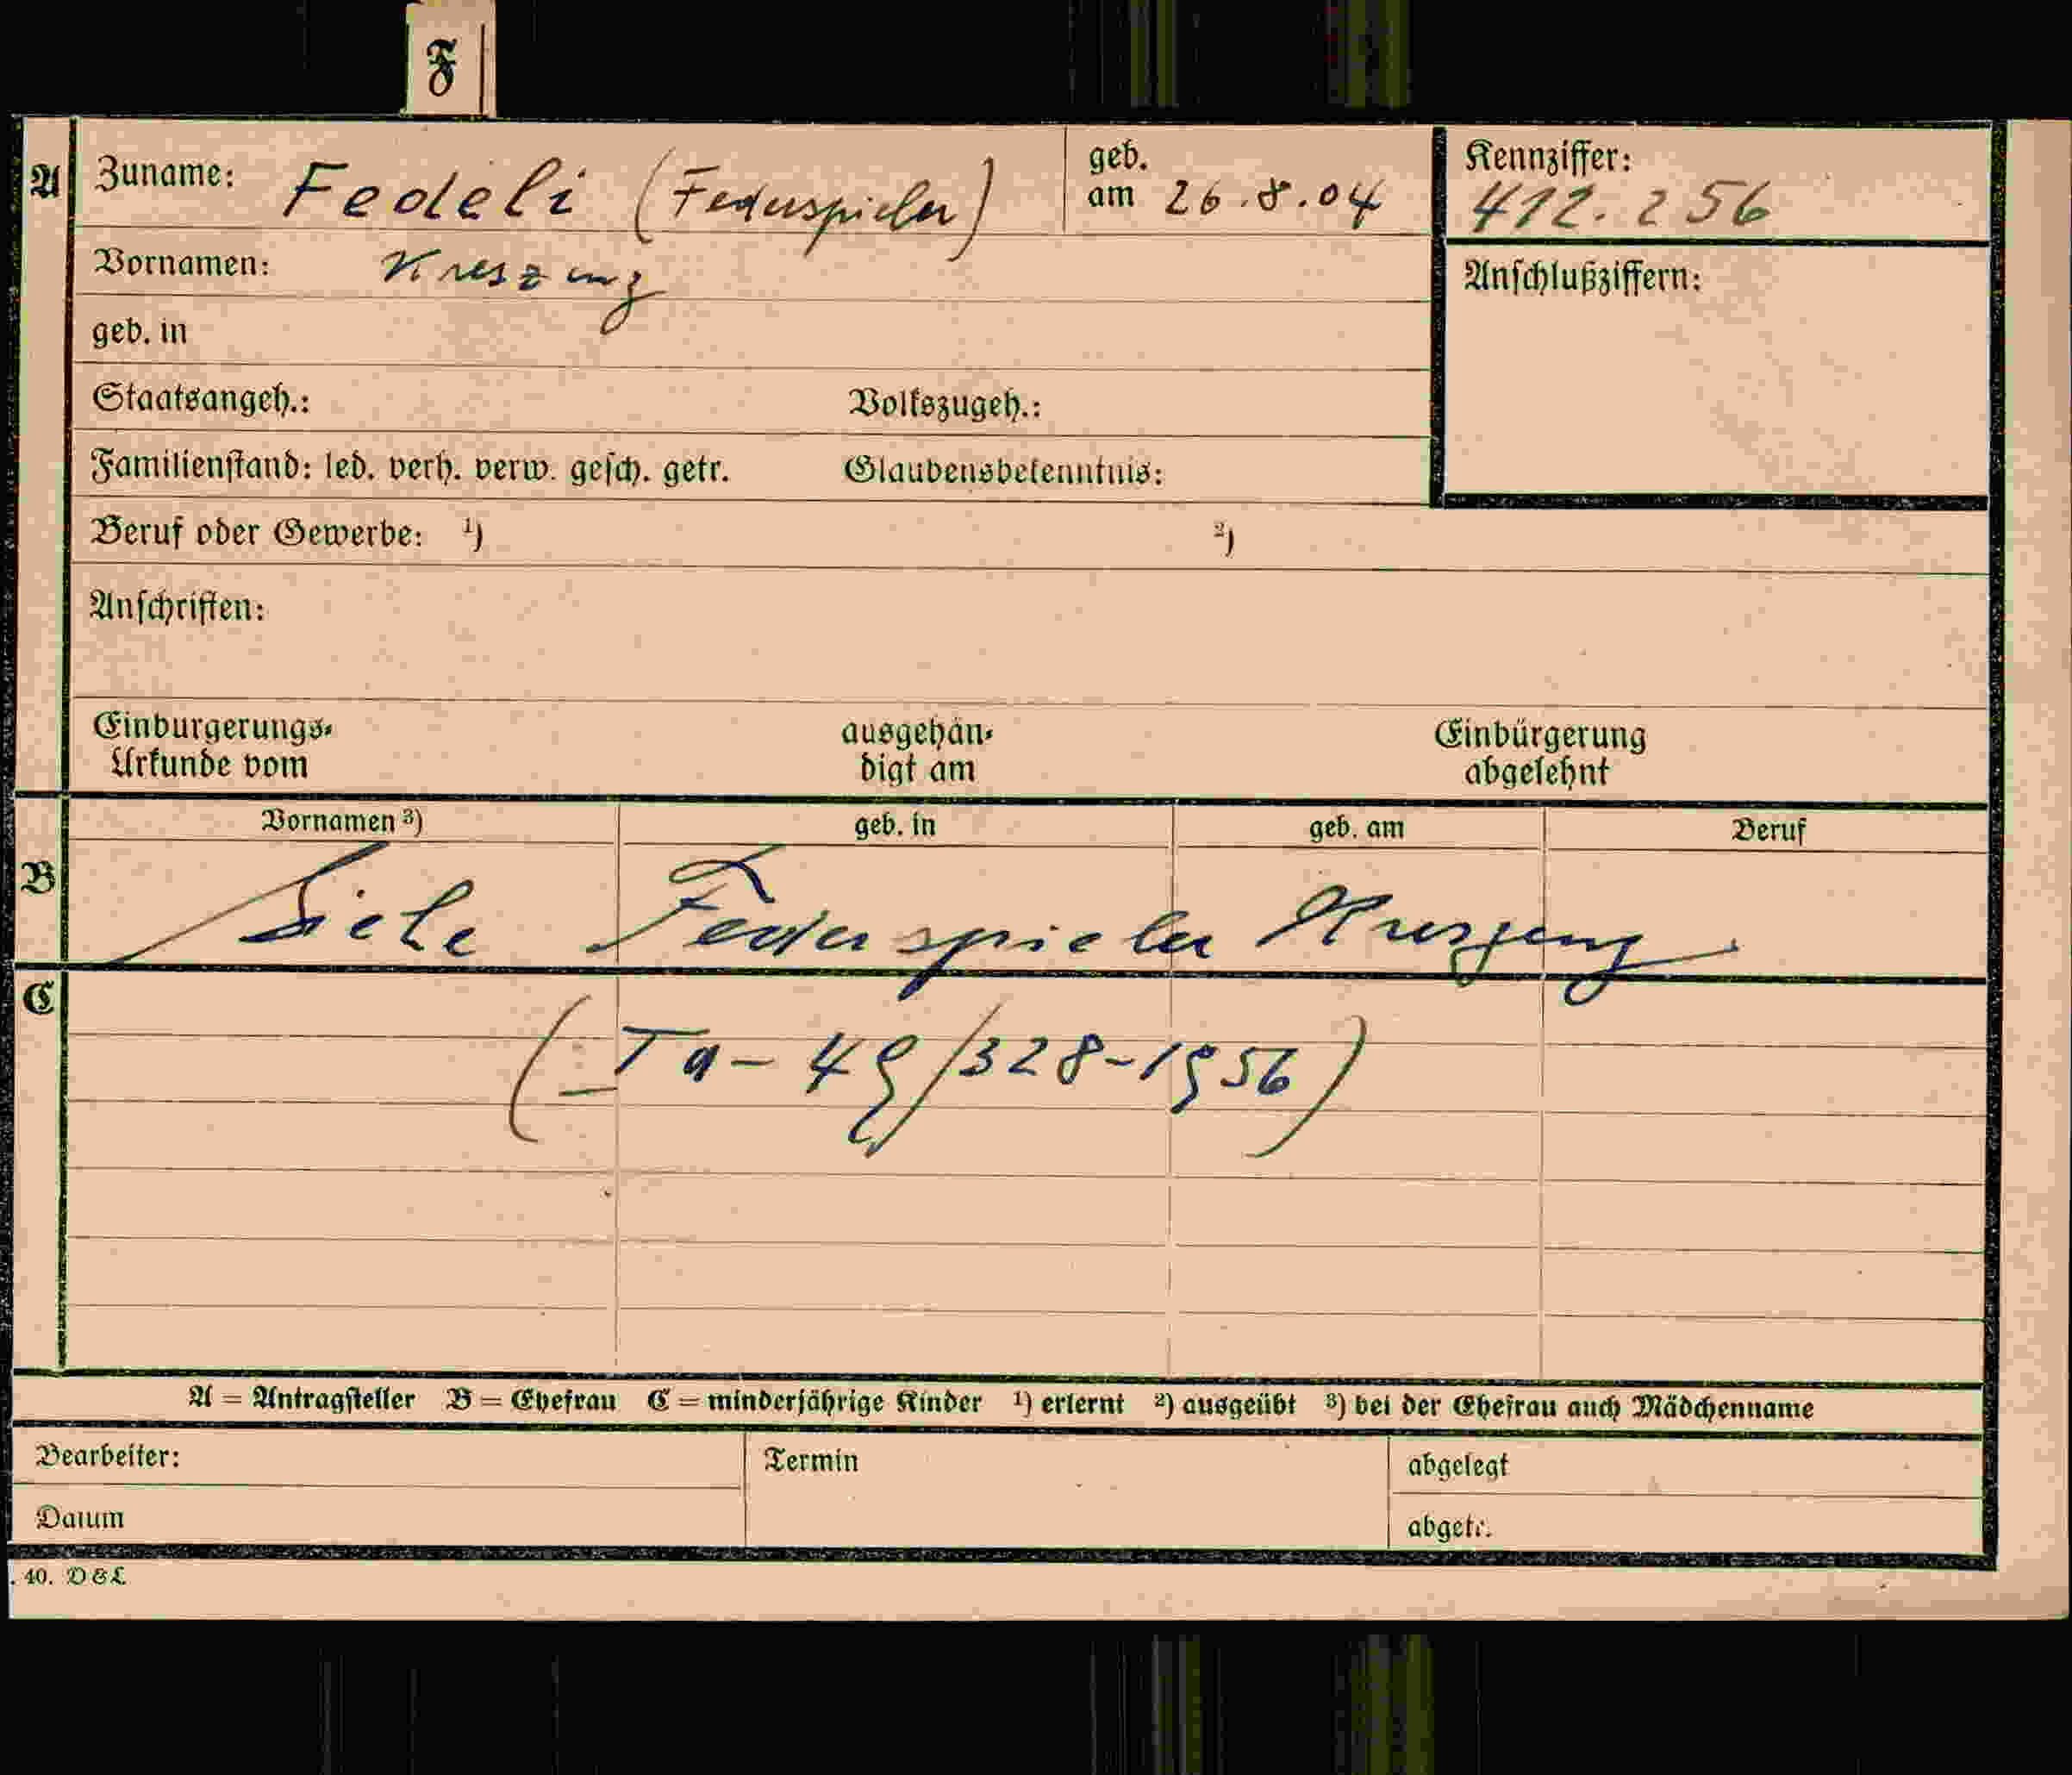 F
A Zuname: Fedeli (Federspieler) geb. am 26.8.04 Kennziffer: 412.256
Vornamen: Kreszenz Anschlußziffern:
geb. in
Staatsangeh.: Volkszugeh.:
Familienstand: led. verh. verw. gesch. getr. Glaubensbekenntnis:
Beruf oder Gewerbe: 1) 2)
Anschriften:
Einbürgerungs- ausgehän- Einbürgerung
Urkunde vom digt am abgelehnt
Vornamen 3) geb. in geb. am Beruf
B Siehe Federspieler Kreszenz
C
(Ta-49/328-1956)
A = Antragsteller B = Ehefrau C = minderjährige Kinder 1) erlernt 2) ausgeübt 3) bei der Ehefrau auch Mädchenname
Bearbeiter: Termin abgelegt
Datum abgetr.
. 40. D & L